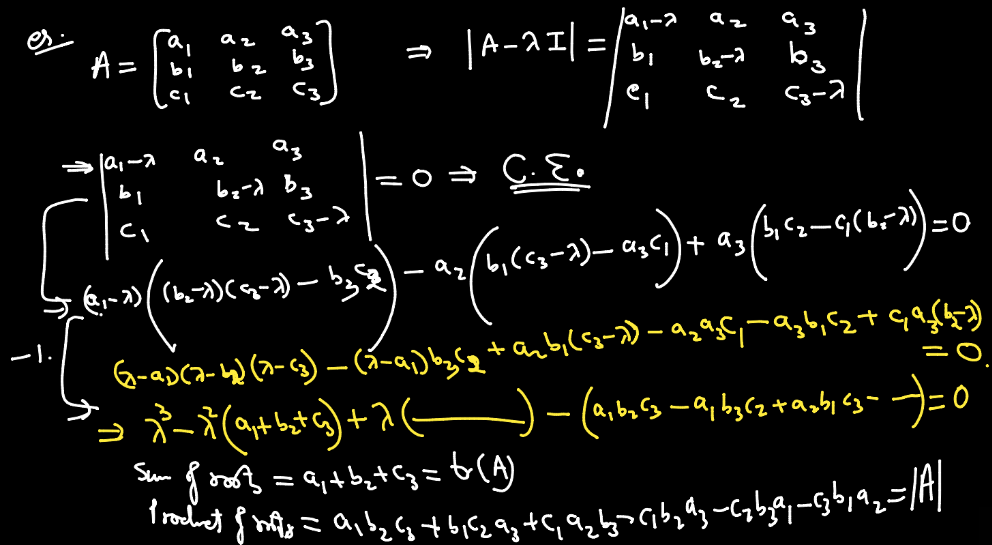 ex. A = [a₁ a₂ a₃; b₁ b₂ b₃; c₁ c₂ c₃] ⇒ |A-λI| = |a₁-λ a₂ a₃; b₁ b₂-λ b₃; c₁ c₂ c₃-λ|
⇒ |a₁-λ a₂ a₃; b₁ b₂-λ b₃; c₁ c₂ c₃-λ| = 0 ⇒ C.E.
⇒ (a₁-λ)((b₂-λ)(c₃-λ) - b₃c₂) - a₂(b₁(c₃-λ) - a₃c₁) + a₃(b₁c₂ - c₁(b₂-λ)) = 0
-1. (λ-a₁)(λ-b₂)(λ-c₃) - (λ-a₁)b₃c₂ + a₂b₁(c₃-λ) - a₂a₃c₁ - a₃b₁c₂ + c₁a₃(b₂-λ) = 0.
⇒ λ³ - λ²(a₁+b₂+c₃) + λ(———) - (a₁b₂c₃ - a₁b₃c₂ + a₂b₁c₃ - —) = 0
Sum of roots = a₁+b₂+c₃ = tr(A)
Product of roots = a₁b₂c₃ + b₁c₂a₃ + c₁a₂b₃ - c₁b₂a₃ - c₂b₃a₁ - c₃b₁a₂ = |A|